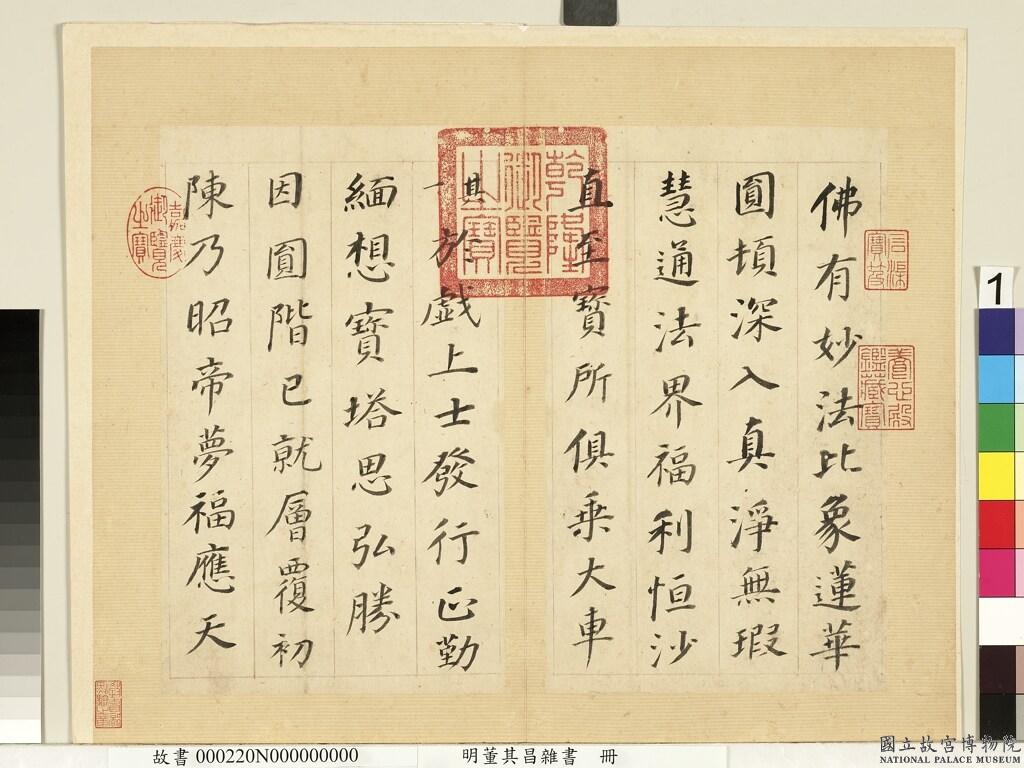 佛有妙法比象蓮華
圓頓深入真淨無瑕
慧通法界福利恒沙
直至寶所俱乘大車
其一 於戲上士發行正勤
緬想寶塔思弘勝
因圓階已就層覆初
陳乃昭帝夢福應天
乾隆御覽之寶
嘉慶御覽之寶
石渠寶笈
養心殿鑑藏寶
1
故書 000220N000000000
明董其昌雜書 冊
國立故宮博物院
NATIONAL PALACE MUSEUM